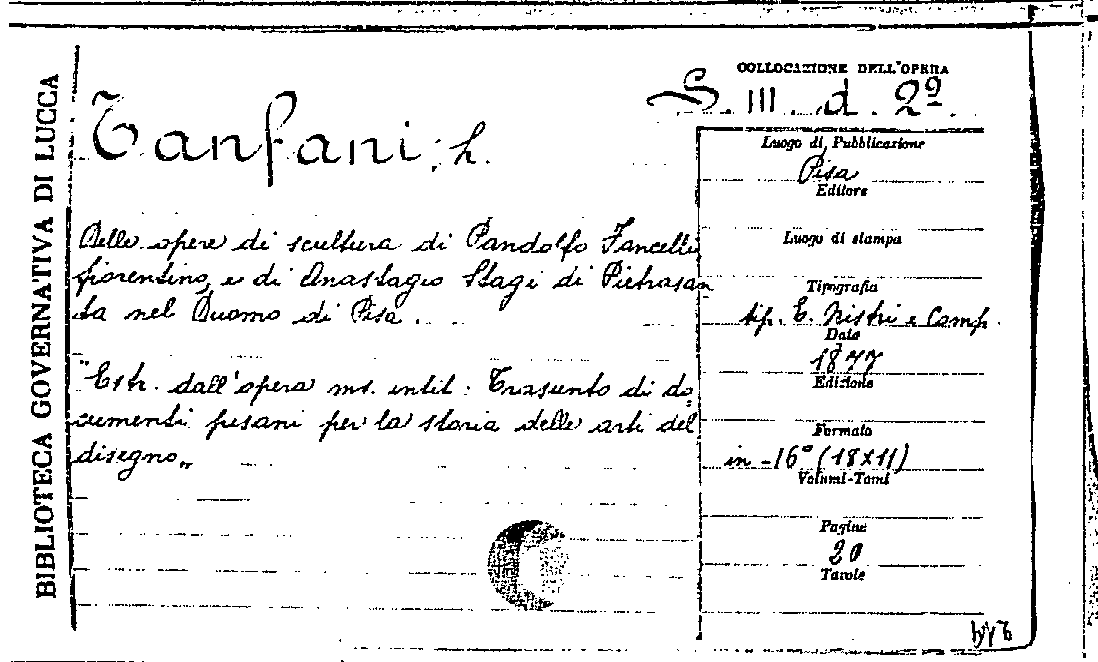 BIBLIOTECA GOVERNATIVA DI LUCCA
COLLOCAZIONE DELL'OPERA
S. III. d. 2º
Tanfani, L.
Delle opere di scultura di Pandolfo Fancelli
fiorentino, e di Anastagio Stagi di Pietrasan
ta nel Duomo di Pisa.
"Estr. dall'opera ms. intit: Trasunto di do=
cumenti pisani per la storia delle arti del
disegno„
Luogo di Pubblicazione
Pisa
Editore
Luogo di stampa
Tipografia
tip. E. Nistri e Comp.
Data
1877
Edizione
Formato
in-16º (18x11)
Volumi-Tomi
Pagine
20
Tavole